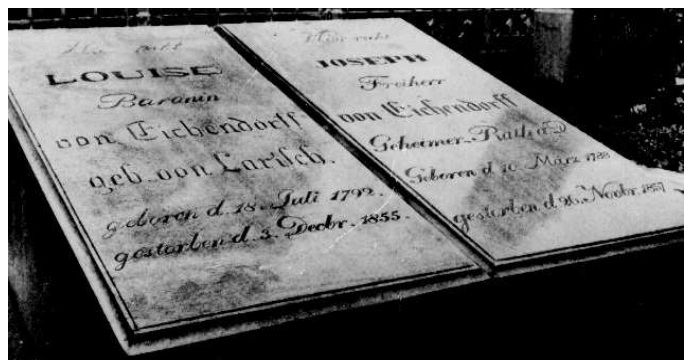 Hier ruht
LOUISE
Baronin
von Eichendorff
geb. von Larisch.
geboren d. 18. Juli 1792.
gestorben d. 3. Decbr. 1855.
Hier ruht
JOSEPH
Freiherr
von Eichendorff
Geheimer-Rath a D
Geboren d 10 März 1788
gestorben d. 26. Novbr. 1857